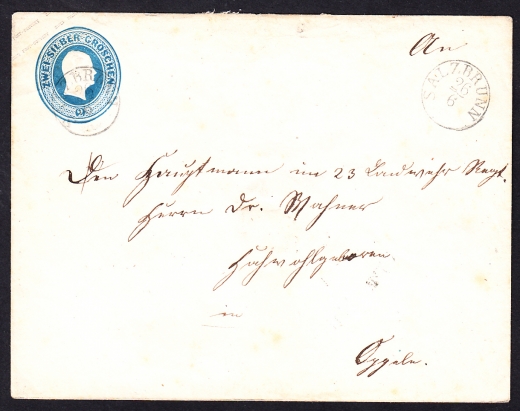 ZWEI SILBER GROSCHEN
2
An
SALZBRUNN
26
6
Den Hauptmann im 23 Landwehr Regt.
Herrn Dr. Wahner
Hochwohlgeboren
in
Oppeln.